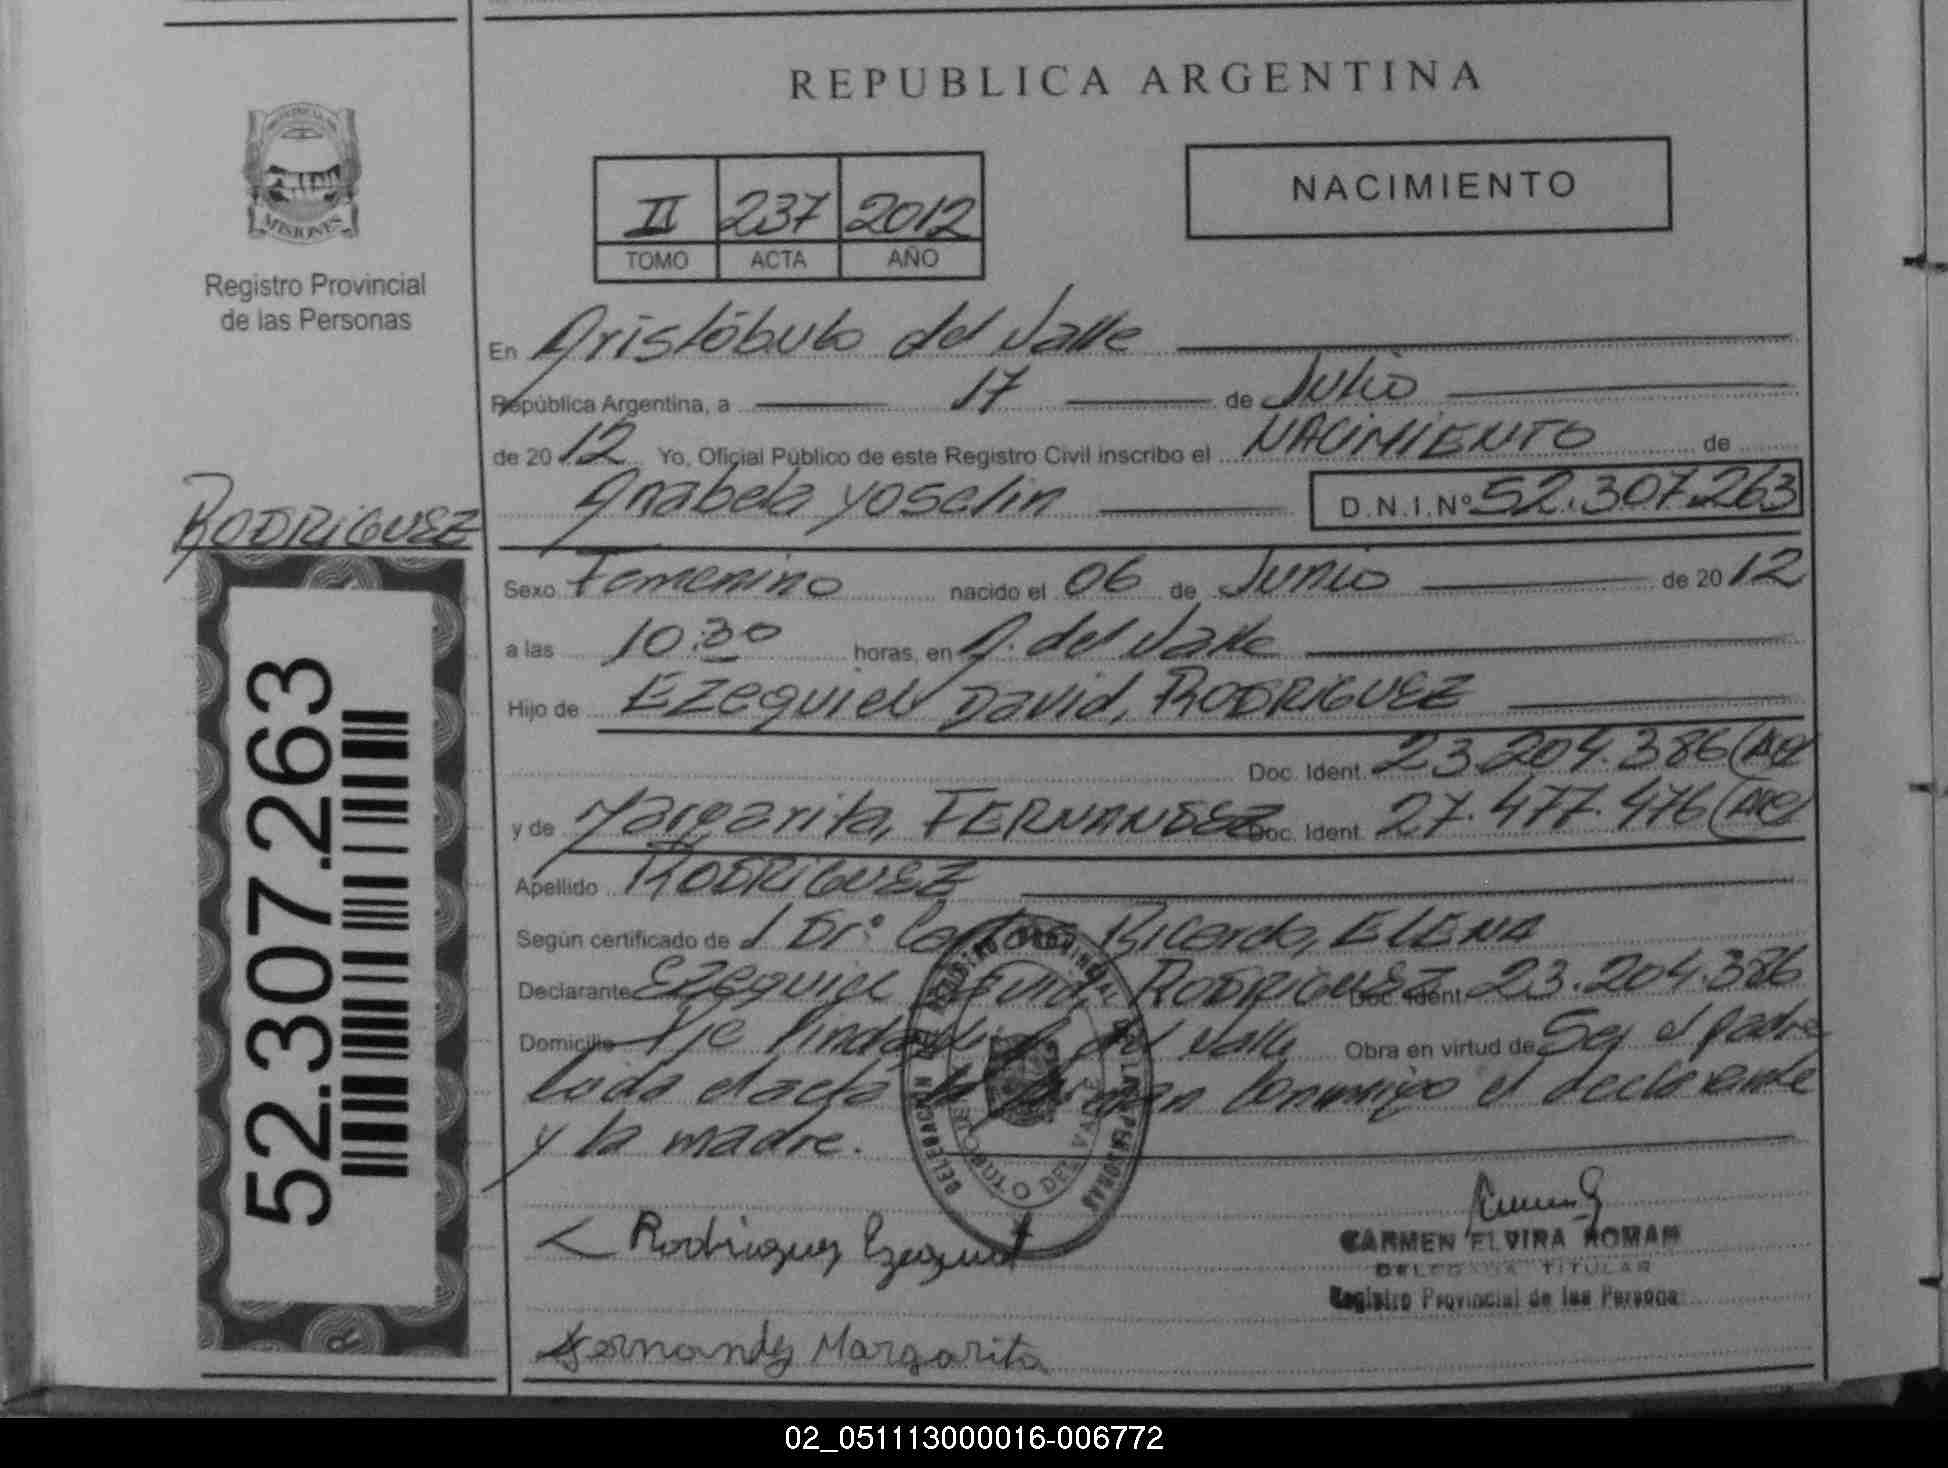 REPUBLICA ARGENTINA
NACIMIENTO
II 237 2012
TOMO ACTA AÑO
MISIONES
Registro Provincial
de las Personas
En Aristóbulo del Valle
República Argentina, a 17 de Julio
de 2012 Yo, Oficial Público de este Registro Civil inscribo el NACIMIENTO de
Anabela Yoselin D.N.I.Nº 52.307.263
RODRIGUEZ
52.307.263
Sexo Femenino nacido el 06 de Junio de 2012
a las 10:30 horas, en A. del Valle
Hijo de Ezequiel David, RODRIGUEZ
Doc. Ident. 23.204.386
y de Margarita, FERNANDEZ Doc. Ident. 27.477.476
Apellido RODRIGUEZ
Según certificado de Dr. Carlos Ricardo, ELENA
Declarante Ezequiel David RODRIGUEZ Doc. Ident. 23.204.386
Domicilio Pje Pindaití A. del Valle Obra en virtud de Ser el padre
Leida el acta la firman conmigo el declarante
y la madre.
DELEGACION REGISTRO PROVINCIAL DE LAS PERSONAS
ARISTOBULO DEL VALLE
Rodriguez Ezequiel
CARMEN ELVIRA ROMAN
DELEGADA TITULAR
Registro Provincial de las Personas
Fernandez Margarita
02_051113000016-006772